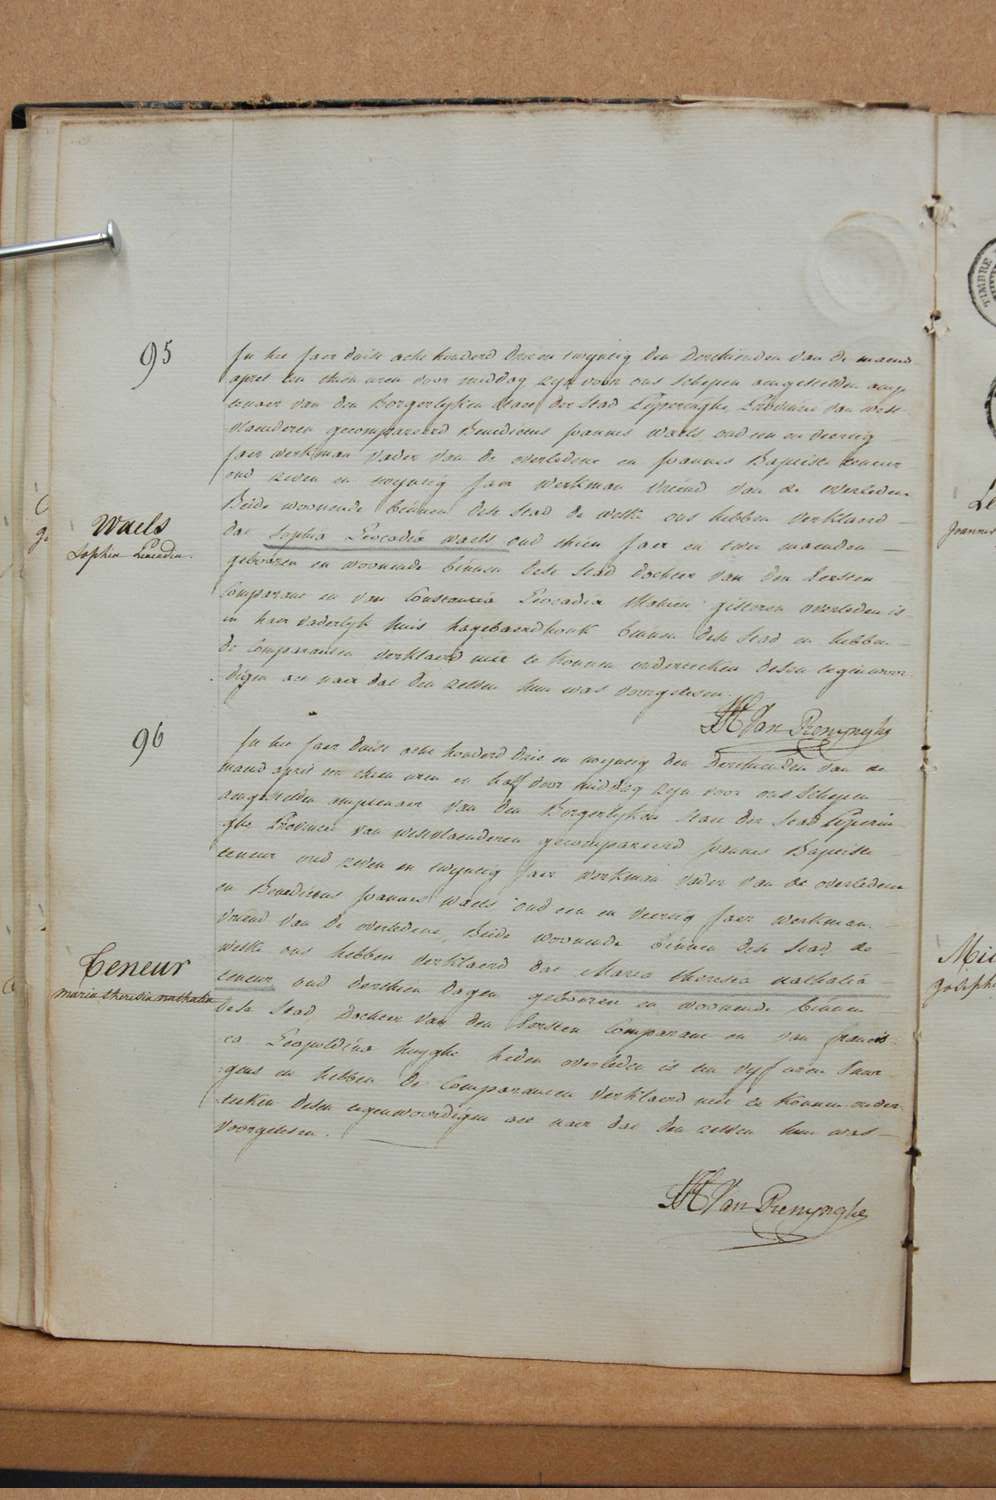 95
In het Jaer duist acht honderd drie en twyntig den derthienden van de maend
april ten thien uren voor middag zyn voor ons Schepen aengestelden amp-
tenaer van den Borgerlyken Staet der Stad Poperinghe Provincie van west
vlaenderen gecompareerd Benedictus Joannes Waels oud een en veertig
Jaer werkman vader van de overledene en Joannes Baptiste Teneur
oud zeven en twyntig Jaer werkman vriend van de overledene
Beide woonende binnen dese Stad de welke ons hebben verklaerd
Waels
Sophia Leocadia
dat Sophia Leocadia Waels oud thien Jaer en twee maenden
gebooren en woonende binnen dese Stad dochter van den Eersten
Comparant en van Constantia Leocadia Mahieu gisteren overleden is
in haer vaderlyk huis binnen dese Stad en hebben
de Comparanten verklaerd niet te konnen onderteeken desen tegenwoor
digen act naer dat den zelven hun was voorgelesen.
Van Renynghe
96
In het Jaer duist acht honderd drie en twyntig den derthienden van de
maend april ten thien uren en half voor middag zyn voor ons Schepen
aengestelden amptenaer van den Borgerlyken Staet der Stad Poperin-
ghe Provincie van westvlaenderen gecompareerd Joannes Baptiste
Teneur oud zeven en twyntig Jaer werkman vader van de overledene
en Benedictus Joannes Waels oud een en veertig Jaer werkman
vriend van de overledene, Beide woonende binnen dese Stad, de
Teneur
maria theresia nathalia
welke ons hebben verklaerd dat Maria theresia nathalia
teneur oud derthien dagen gebooren en woonende binnen
dese Stad, dochter van den Eersten Comparant en van francis-
ca Leopoldina huyghe heden overleden is ten vyf uren Smor-
gens en hebben de Comparanten verklaerd niet te konnen onder-
teeken desen tegenwoordigen act naer dat den zelven hun was
voorgelesen.
Van Renynghe
TIMBRE